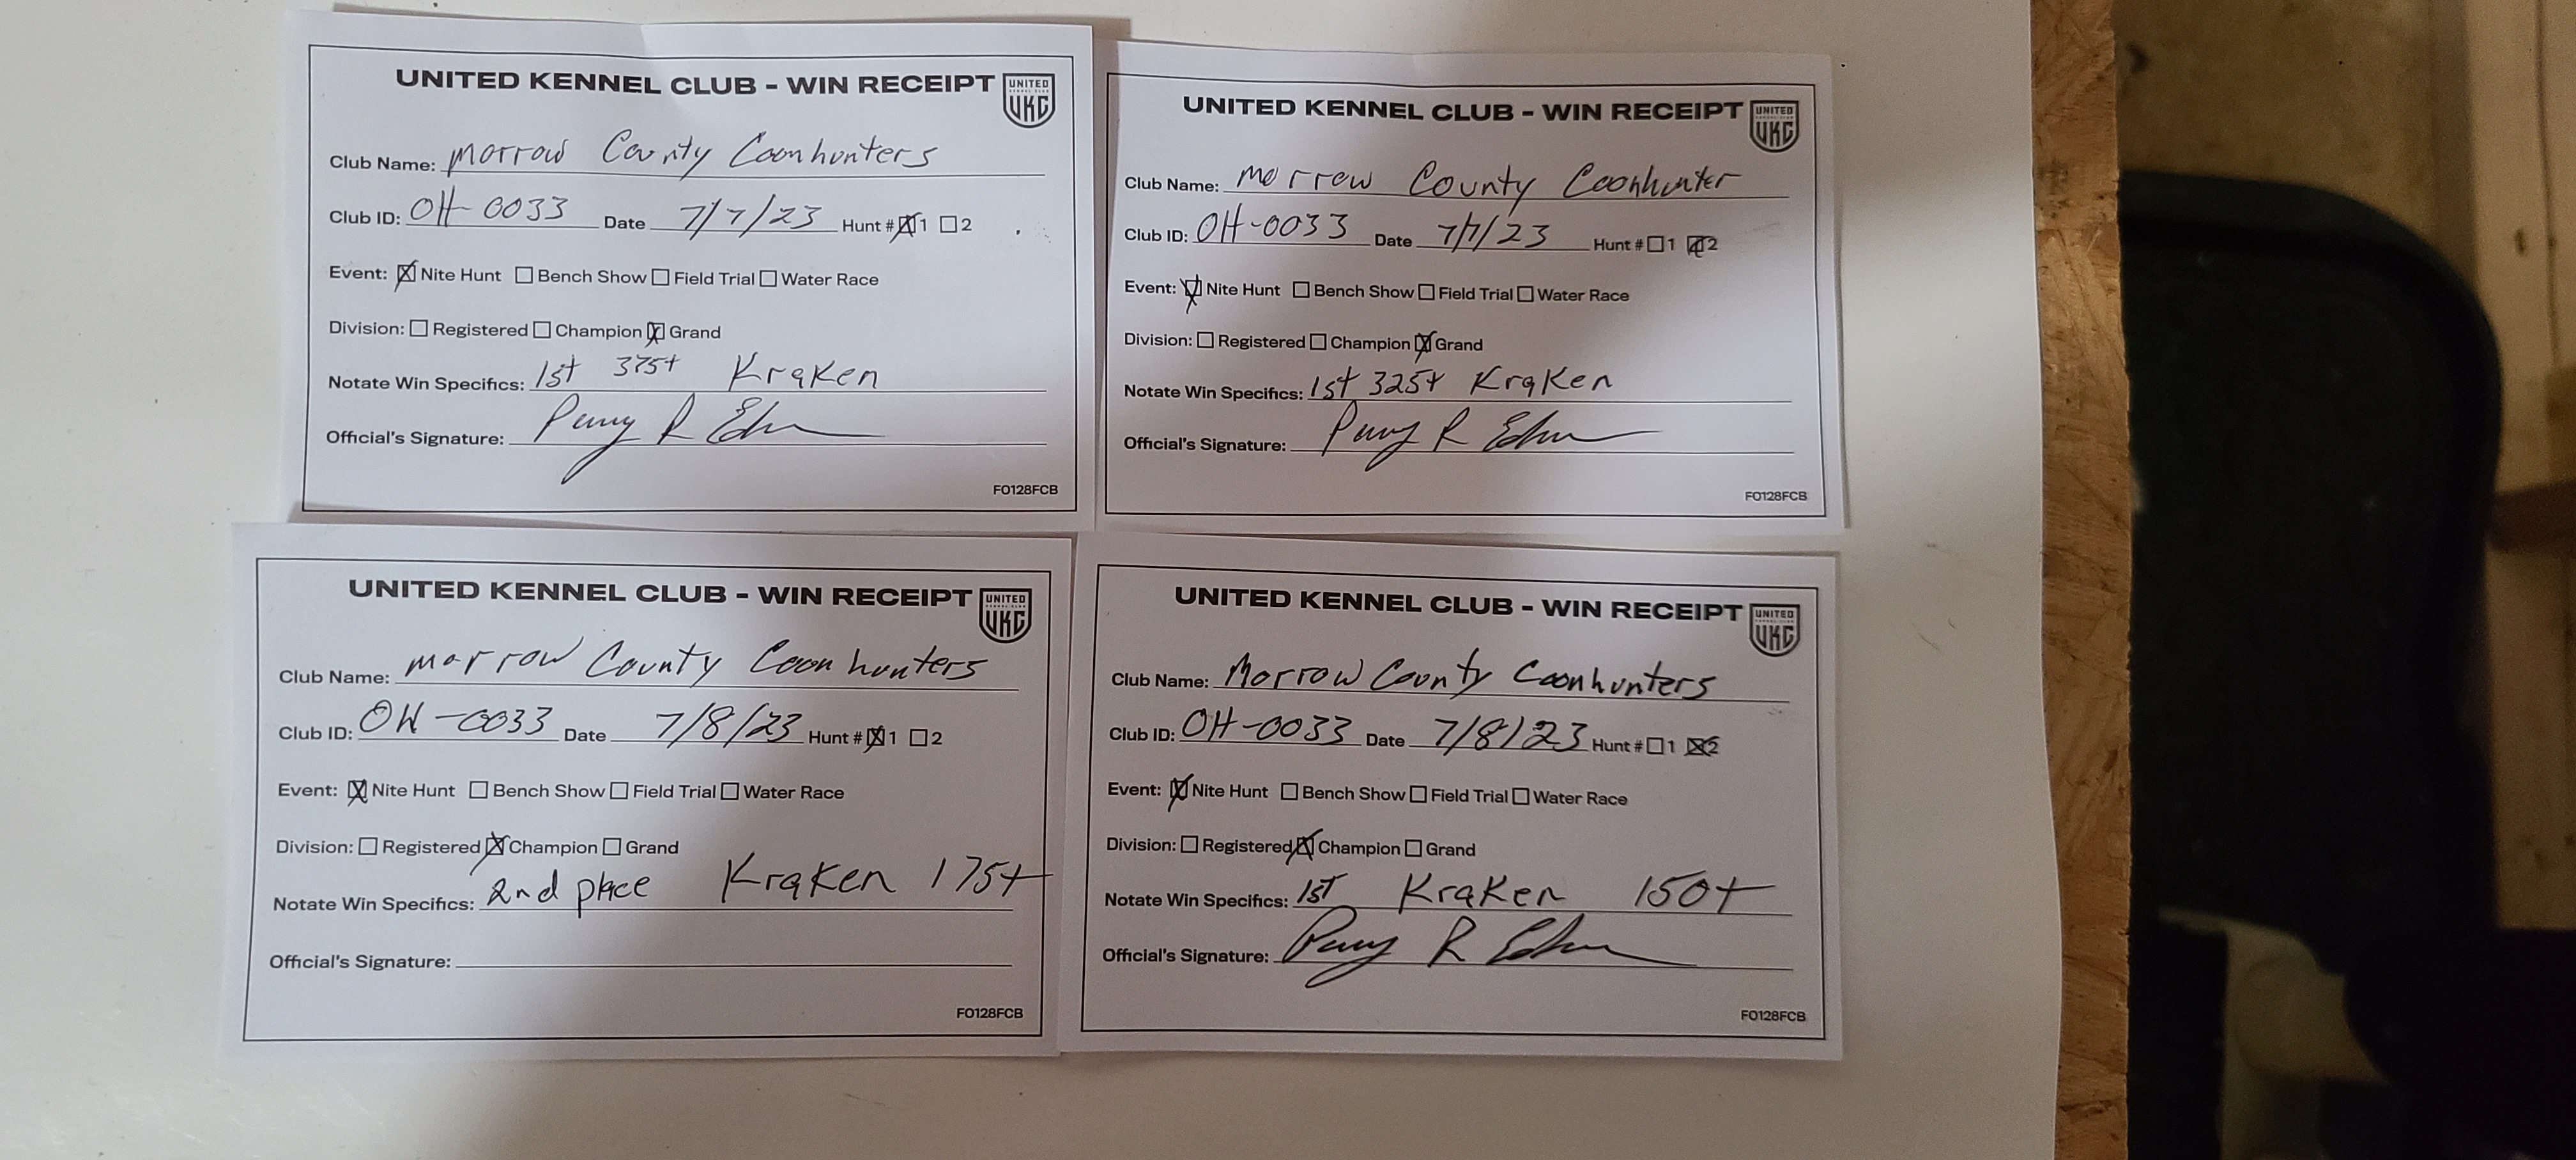 UNITED KENNEL CLUB - WIN RECEIPT
UNITED
UKC
Club Name: Morrow County Coonhunters
Club ID: OH-0033 Date 7/7/23 Hunt # 1 2
Event: Nite Hunt Bench Show Field Trial Water Race
Division: Registered Champion Grand
Notate Win Specifics: 1st 375+ Kraken
Official's Signature: R
F0128FCB
UNITED KENNEL CLUB - WIN RECEIPT
UNITED
UKC
Club Name: Morrow County Coonhunter
Club ID: OH-0033 Date 7/7/23 Hunt # 1 2
Event: Nite Hunt Bench Show Field Trial Water Race
Division: Registered Champion Grand
Notate Win Specifics: 1st 325+ Kraken
Official's Signature: R
F0128FCB
UNITED KENNEL CLUB - WIN RECEIPT
UNITED
UKC
Club Name: Morrow County Coonhunters
Club ID: OH-0033 Date 7/8/23 Hunt # 1 2
Event: Nite Hunt Bench Show Field Trial Water Race
Division: Registered Champion Grand
Notate Win Specifics: 2nd place Kraken 175+
Official's Signature:
F0128FCB
UNITED KENNEL CLUB - WIN RECEIPT
UNITED
UKC
Club Name: Morrow County Coonhunters
Club ID: OH-0033 Date 7/8/23 Hunt # 1 2
Event: Nite Hunt Bench Show Field Trial Water Race
Division: Registered Champion Grand
Notate Win Specifics: 1st Kraken 150+
Official's Signature: R
F0128FCB